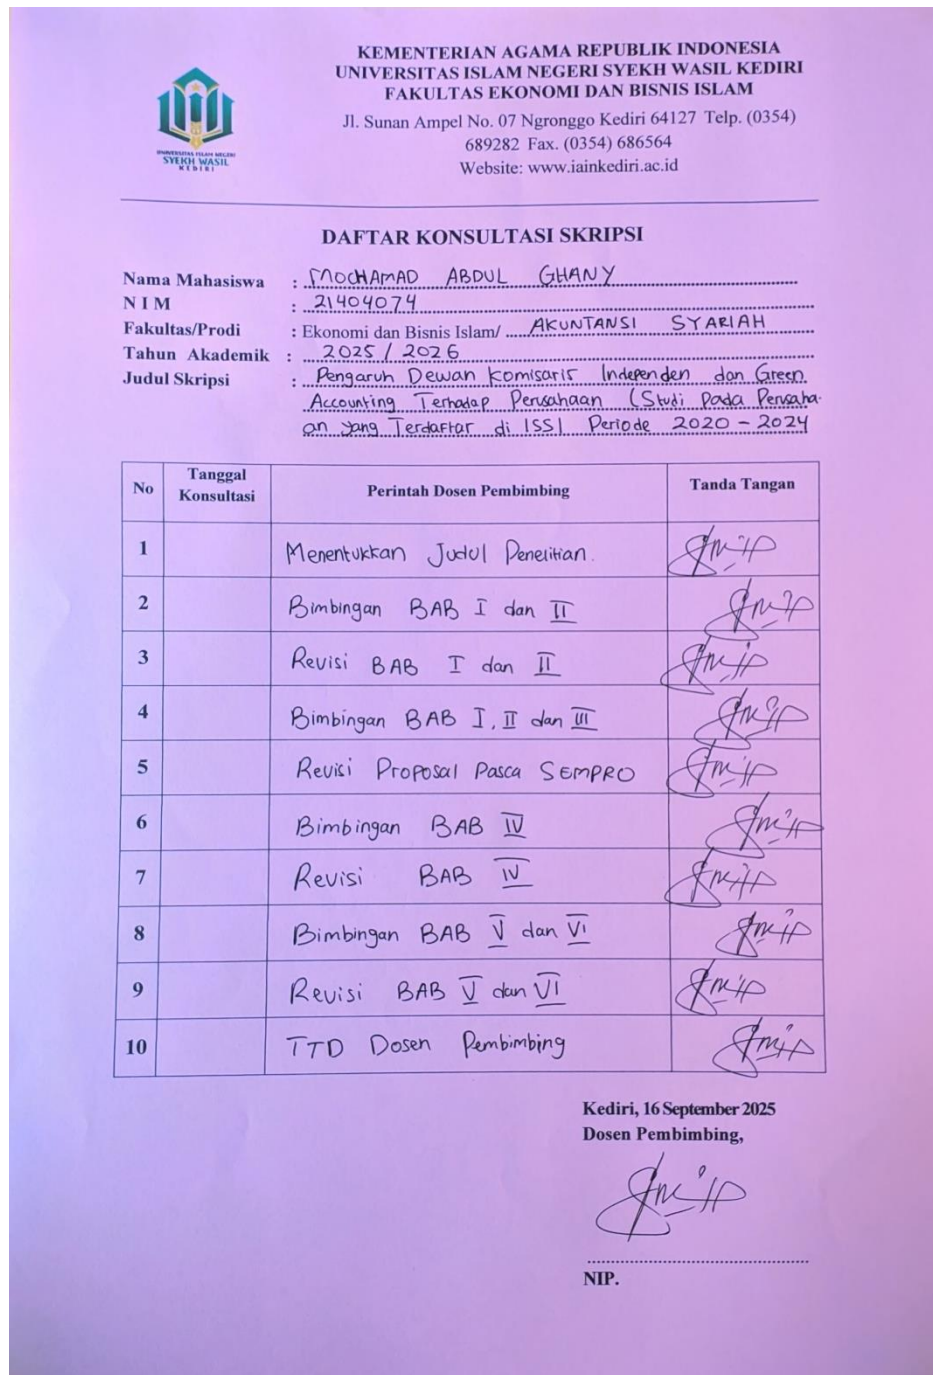 KEMENTERIAN AGAMA REPUBLIK INDONESIA
UNIVERSITAS ISLAM NEGERI SYEKH WASIL KEDIRI
FAKULTAS EKONOMI DAN BISNIS ISLAM
Jl. Sunan Ampel No. 07 Ngronggo Kediri 64127 Telp. (0354)
689282 Fax. (0354) 686564
Website: www.iainkediri.ac.id
UNIVERSITAS ISLAM NEGERI
SYEKH WASIL
KEDIRI
DAFTAR KONSULTASI SKRIPSI
Nama Mahasiswa : MOCHAMAD ABDUL GHANY
N I M : 21404074
Fakultas/Prodi : Ekonomi dan Bisnis Islam/ AKUNTANSI SYARIAH
Tahun Akademik : 2025 / 2026
Judul Skripsi : Pengaruh Dewan Komisaris Independen dan Green
Accounting Terhadap Perusahaan (Studi Pada Perusaha-
an yang Terdaftar di ISSI Periode 2020 - 2024
No Tanggal Konsultasi Perintah Dosen Pembimbing Tanda Tangan
1 Menentukkan Judul Penelitian.
2 Bimbingan BAB I dan II
3 Revisi BAB I dan II
4 Bimbingan BAB I, II dan III
5 Revisi Proposal Pasca SEMPRO
6 Bimbingan BAB IV
7 Revisi BAB IV
8 Bimbingan BAB V dan VI
9 Revisi BAB V dan VI
10 TTD Dosen Pembimbing
Kediri, 16 September 2025
Dosen Pembimbing,
NIP.